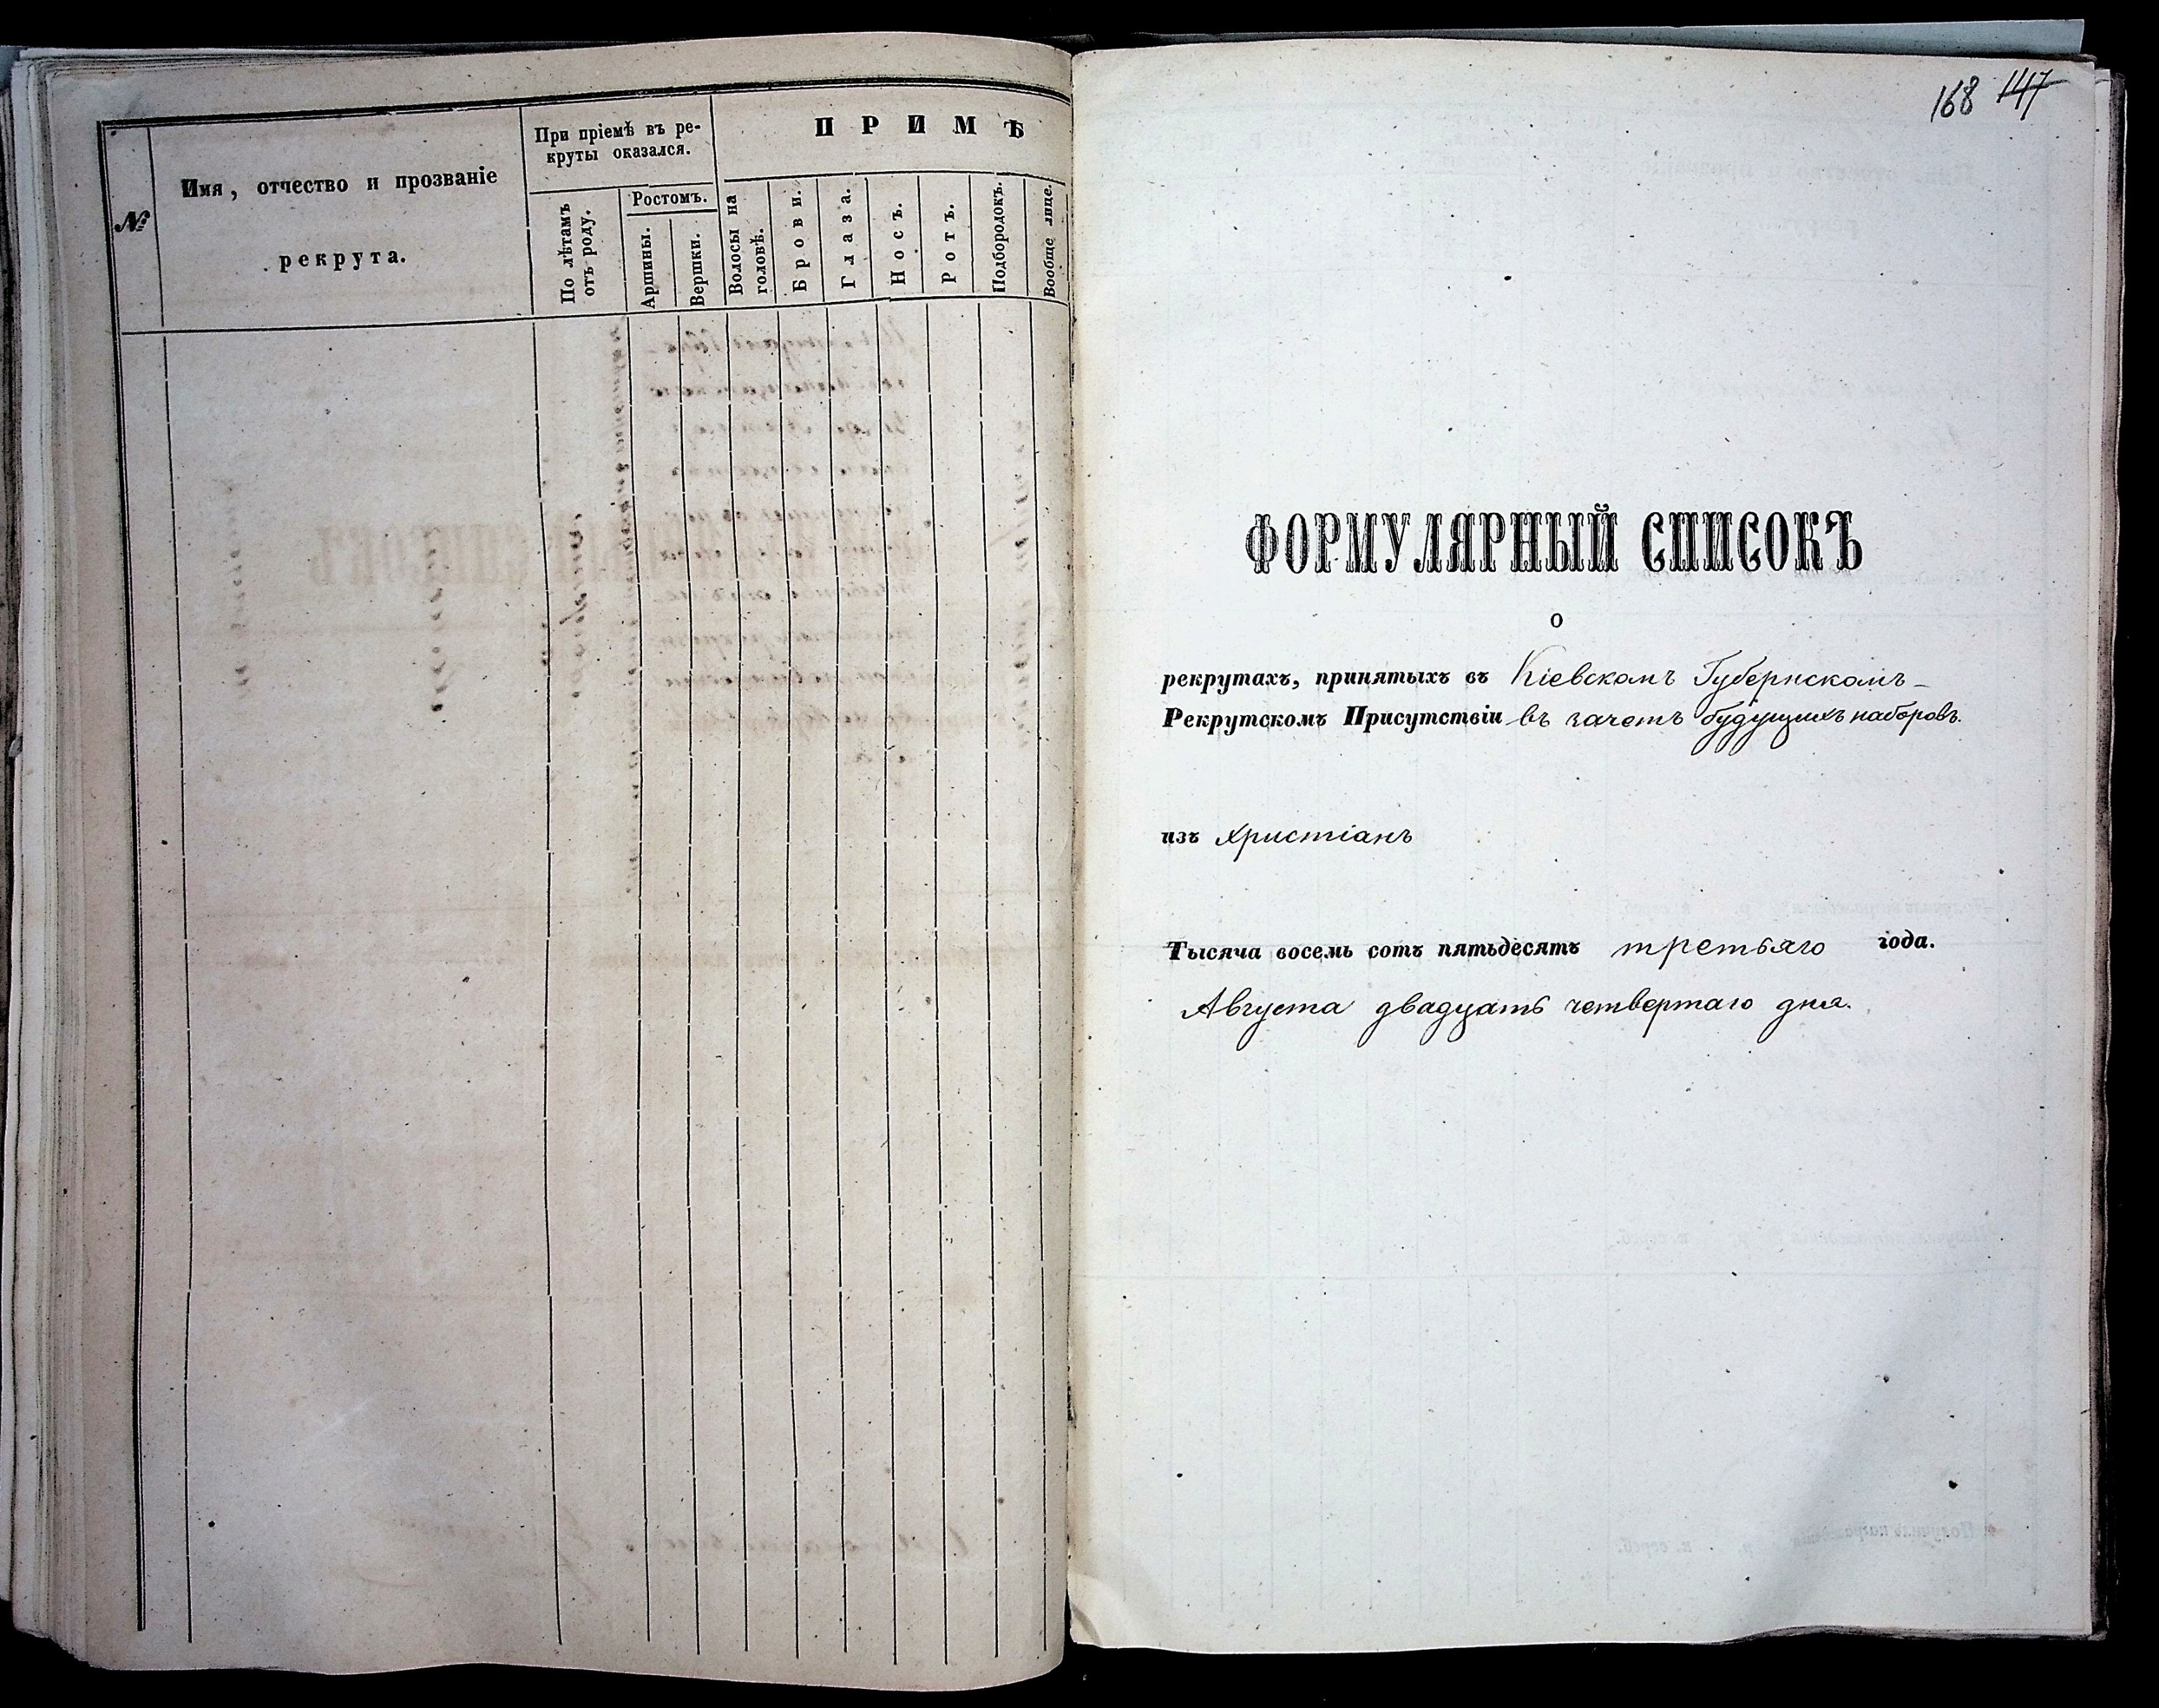 №
Имя, отчество и прозваніе
рекрута.
При пріемѣ въ ре-
круты оказался.
По лѣтамъ
отъ роду.
Ростомъ.
Аршины.
Вершки.
ПРИМѢ
Волосы на
головѣ.
Брови.
Глаза.
Носъ.
Ротъ.
Подбородокъ.
Вообще лице.
168 147
ФОРМУЛЯРНЫЙ СПИСОКЪ
о
рекрутахъ, принятыхъ въ Кіевскомъ Губернскомъ
Рекрутскомъ Присутствіи въ зачетъ будущихъ наборовъ.
изъ христіанъ
Тысяча восемь сотъ пятьдесятъ третьяго года.
Августа двадцать четвертаго дня.